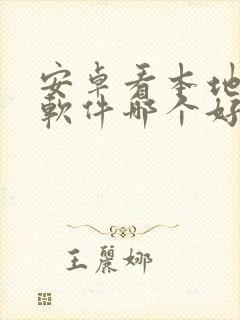 安卓看本地
軟件哪个好
王麗娜